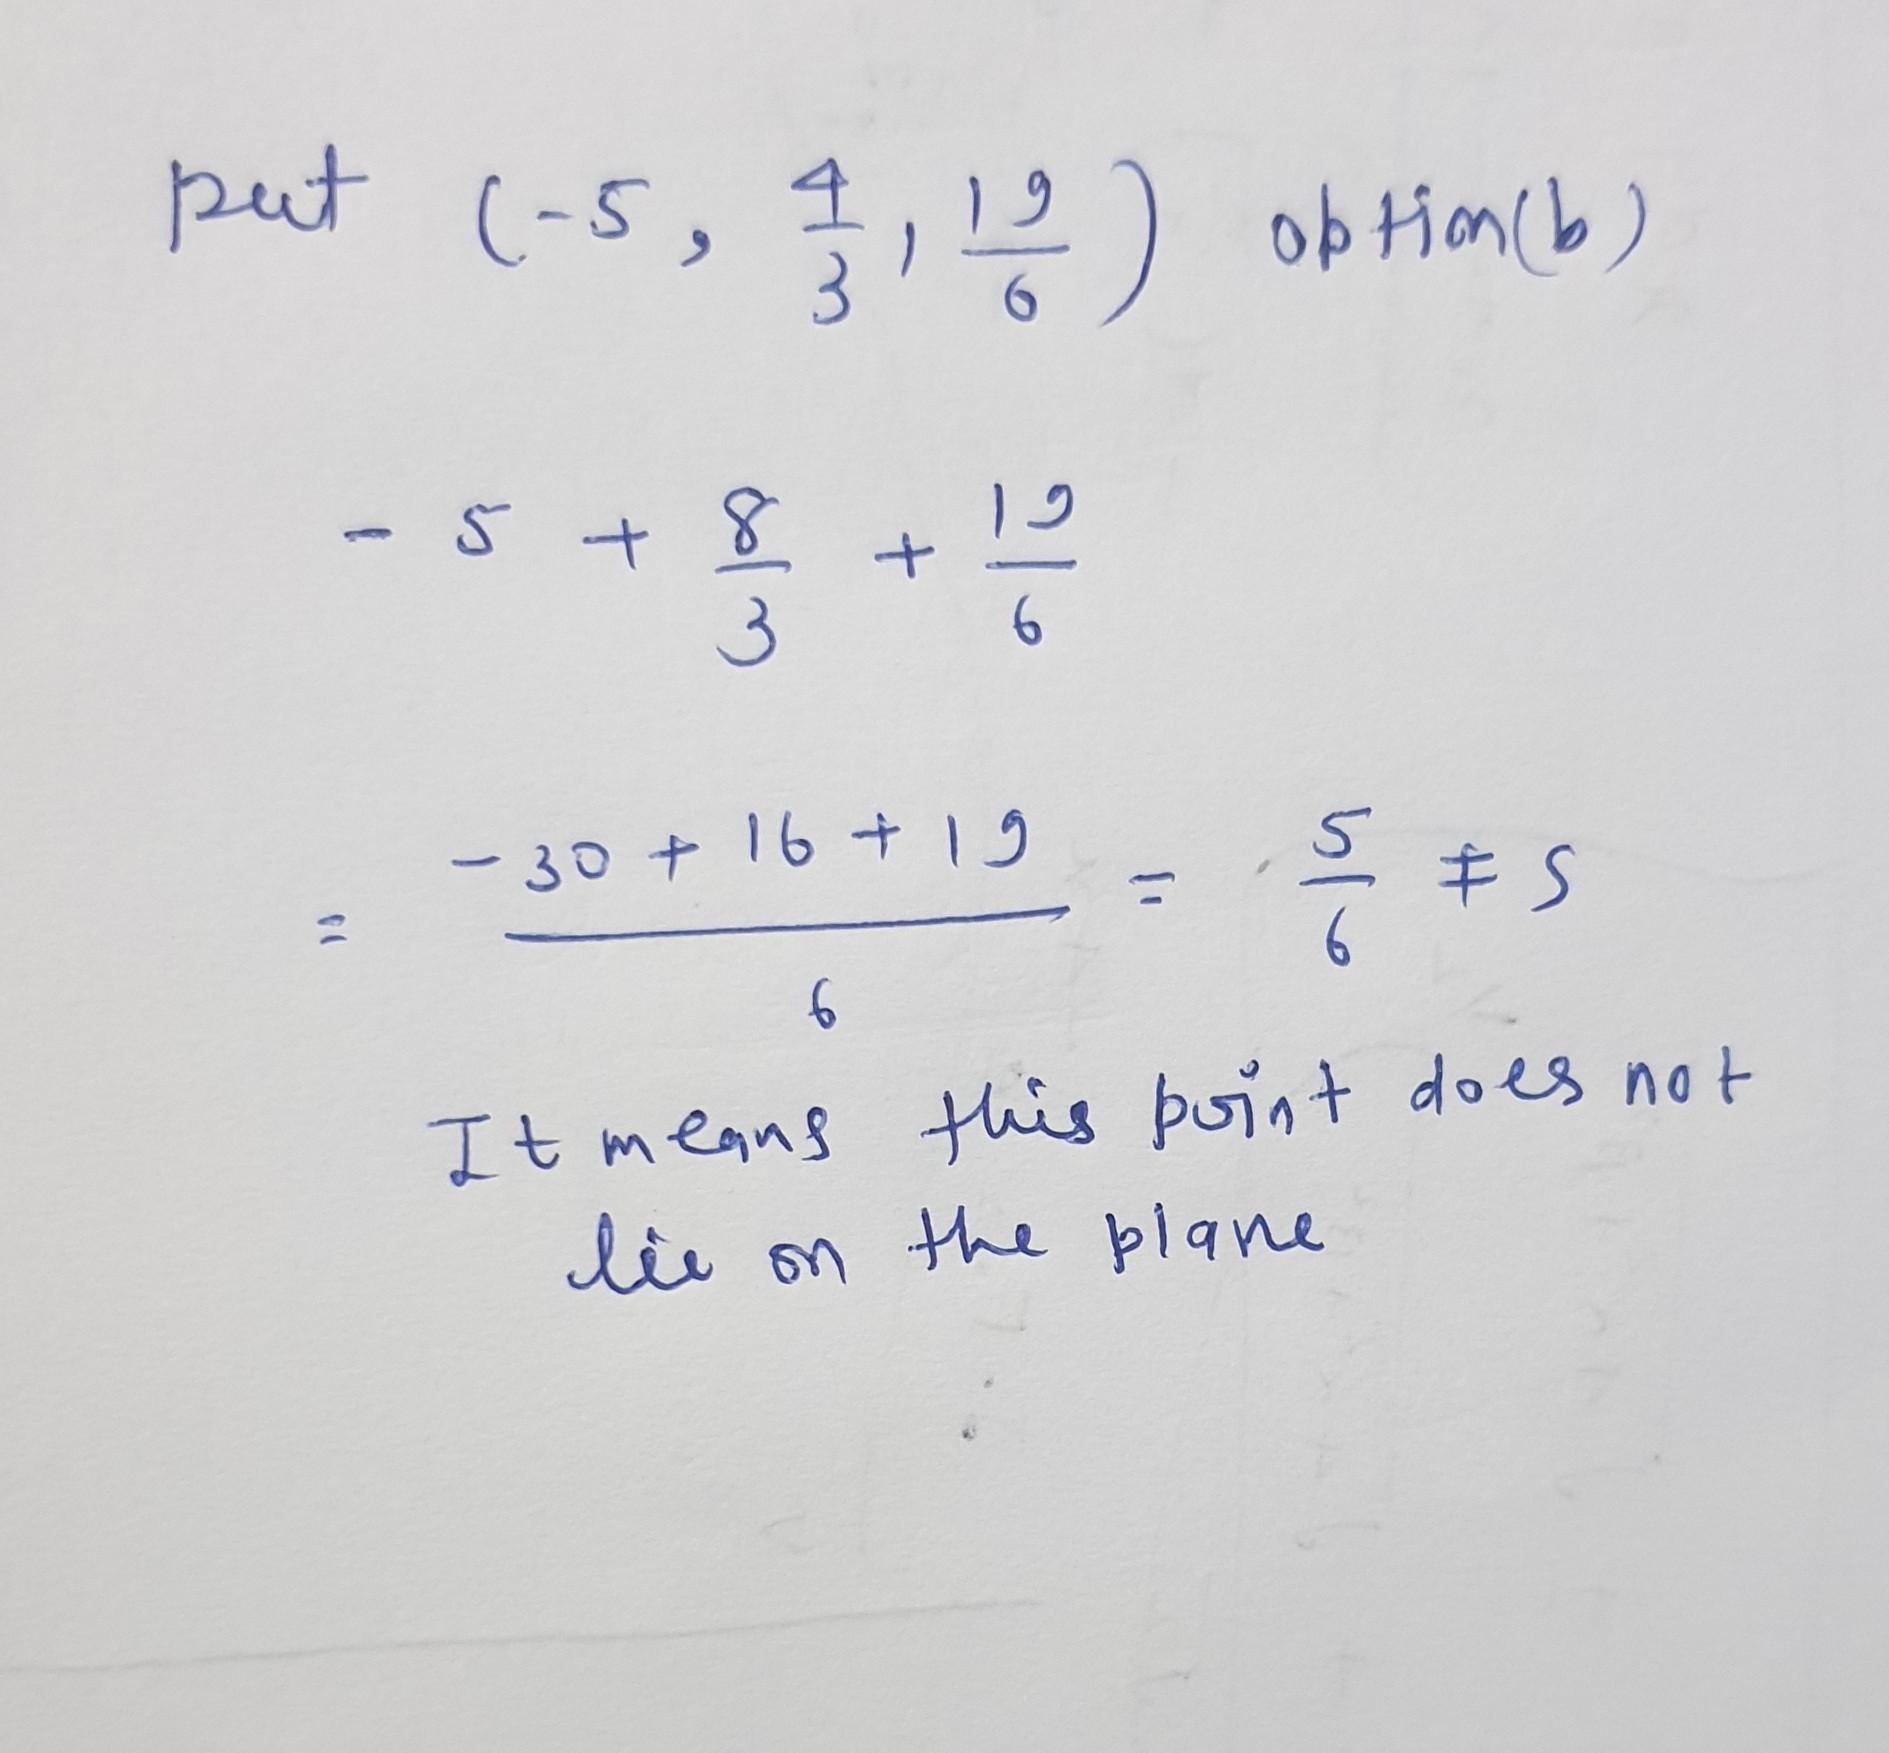 put (-5, 4/3, 19/6) option(b)
- 5 + 8/3 + 19/6
= (-30 + 16 + 19)/6 = 5/6 ≠ 5
It means this point does not
lie on the plane